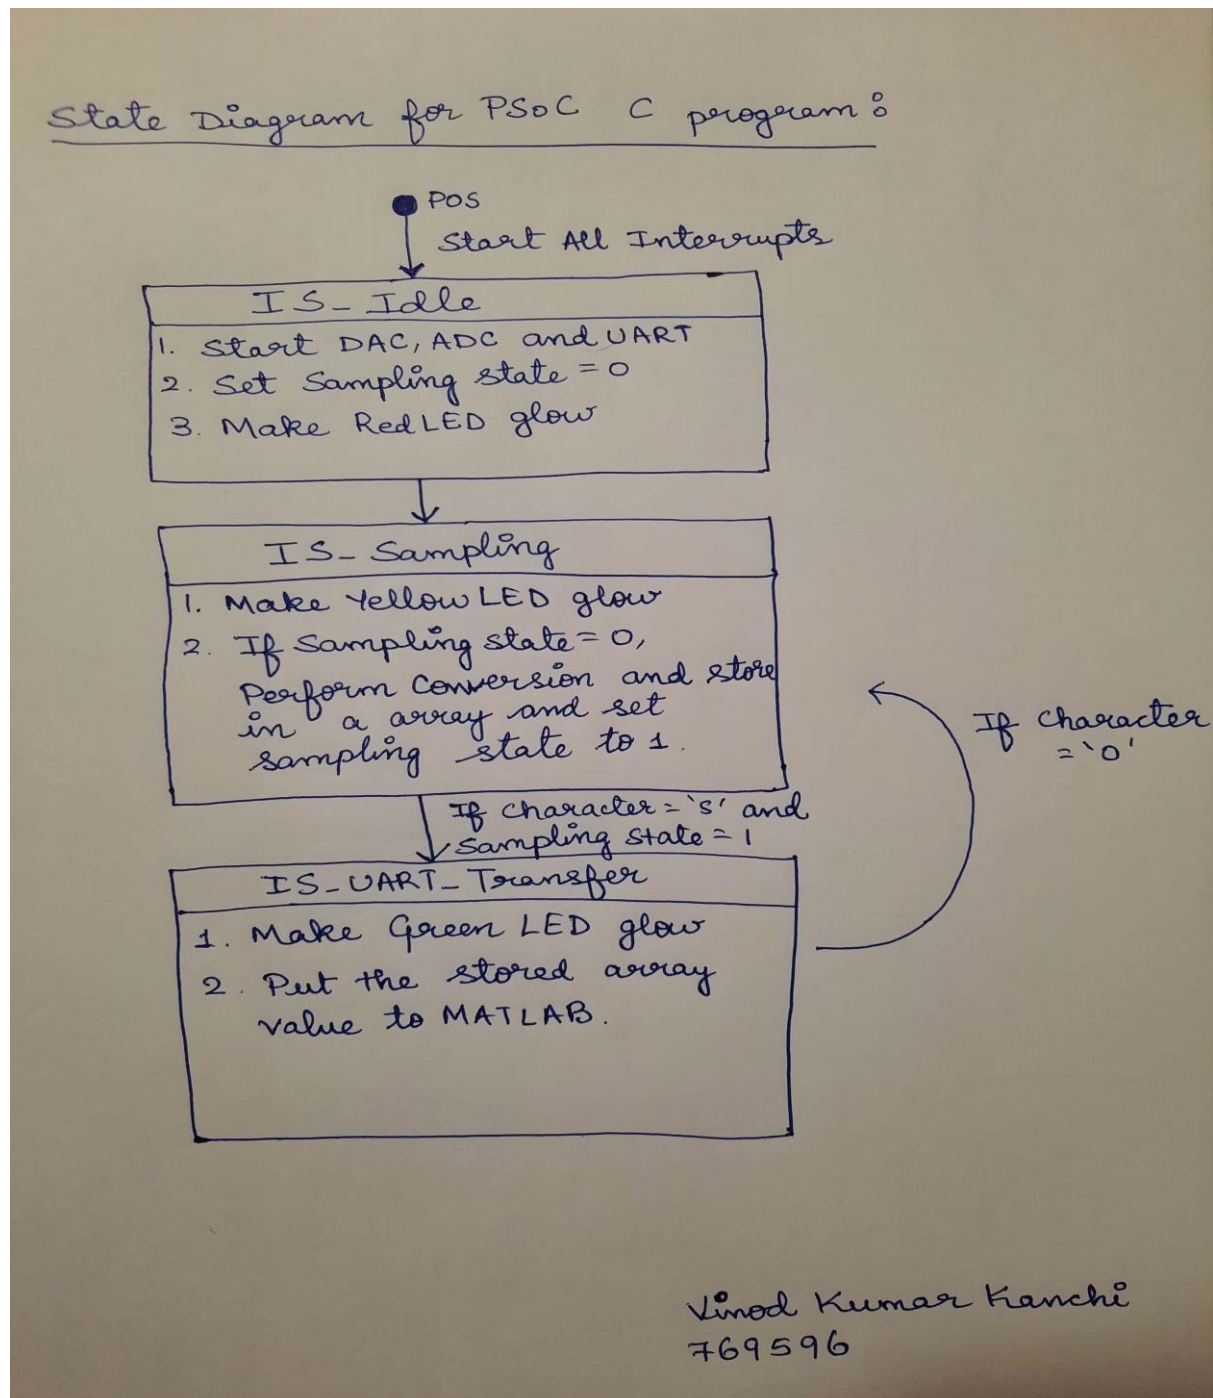 State Diagram for PSoC C program:
POS
Start All Interrupts
IS_Idle
1. Start DAC, ADC and UART
2. Set Sampling state = 0
3. Make Red LED glow
IS_Sampling
1. Make Yellow LED glow
2. If Sampling state = 0,
Perform Conversion and store
in a array and set
sampling state to 1.
If character
= '0'
If character = 's' and
Sampling state = 1
IS_UART_Transfer
1. Make Green LED glow
2. Put the stored array
value to MATLAB.
Vinod Kumar Kanchi
769596